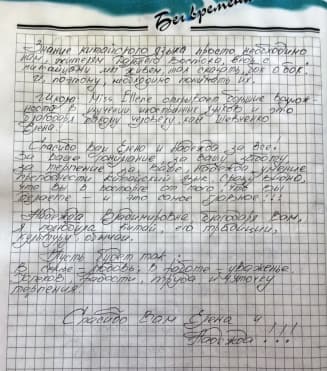 Бег времени
Знание китайского языка просто необходимо
нам, жителям Дальнего Востока, ведь с
китайцами мы живем, так сказать, бок о бок.
И поэтому, необходимо понимать их.
Школа Miss Elene открывает большие возмож-
ности в изучении иностранных, учитель этого
благодаря такому человеку, как Шевченко
Елена.
Спасибо Вам Елена и Надежда за все.
За ваше понимание, за вашу заботу
за терпение, за Ваше, Надежда, умение
китайский язык, сразу видно,
что вы в восторге от того, что вы
делаете – и это самое главное!!!
Надежда Владимировна благодаря Вам,
я полюбила Китай, его традиции,
культуру, обычаи.
Пусть будет так:
В семье – любовь, в работе – уважение.
Успехов, радости, труда и чуточку
терпения.
Спасибо Вам Елена и
Надежда!!!